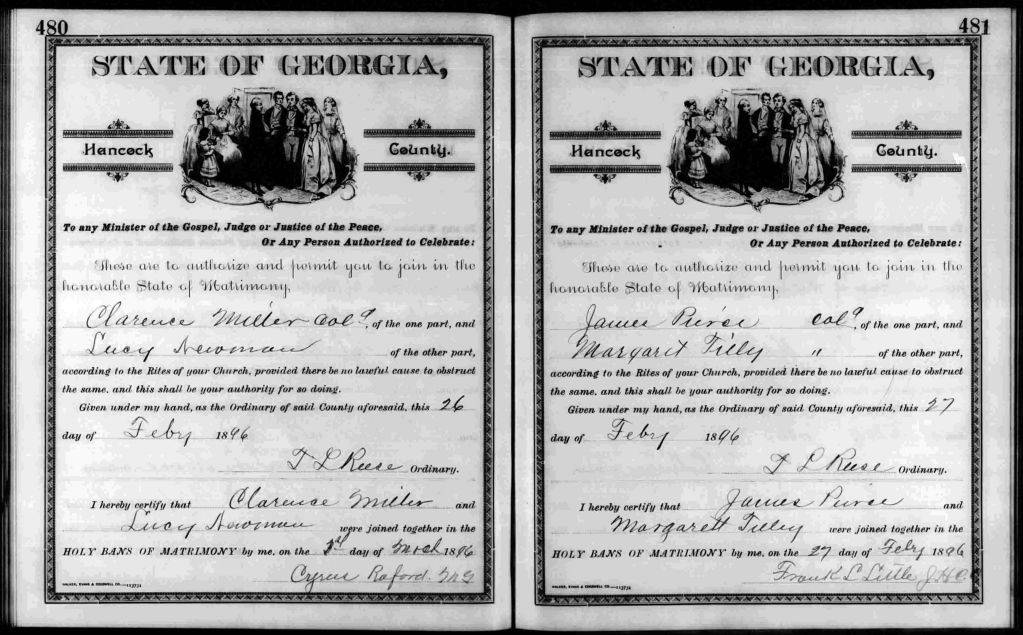 480
STATE OF GEORGIA,
Hancock County.
To any Minister of the Gospel, Judge or Justice of the Peace,
Or Any Person Authorized to Celebrate:
These are to authorize and permit you to join in the
honorable State of Matrimony,
Clarence Miller Cold, of the one part, and
Lucy Newman of the other part,
according to the Rites of your Church, provided there be no lawful cause to obstruct
the same, and this shall be your authority for so doing.
Given under my hand, as the Ordinary of said County aforesaid, this 26
day of Feby 1896
T L Reese Ordinary.
I hereby certify that Clarence Miller and
Lucy Newman were joined together in the
HOLY BANS OF MATRIMONY by me, on the day of March 1896
Cyrus Raford.
WALKER, EVANS & COGSWELL CO.—113731
481
STATE OF GEORGIA,
Hancock County.
To any Minister of the Gospel, Judge or Justice of the Peace,
Or Any Person Authorized to Celebrate:
These are to authorize and permit you to join in the
honorable State of Matrimony,
James Pierse cold, of the one part, and
Margarit Tilly " of the other part,
according to the Rites of your Church, provided there be no lawful cause to obstruct
the same, and this shall be your authority for so doing.
Given under my hand, as the Ordinary of said County aforesaid, this 27
day of Feby 1896
T L Reese Ordinary.
I hereby certify that James Pierse and
Margarett Tilley were joined together in the
HOLY BANS OF MATRIMONY by me, on the 27 day of Feby 1896
Frank L Little
WALKER, EVANS & COGSWELL CO.—113731